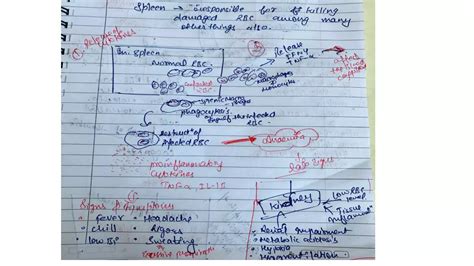 Spleen → Responsible for killing
damaged RBC among many
other things also.
① Release of
cytokines
In Spleen
Normal RBC
infected
RBC
Release
IFN-γ
TNF-α
affect
Macrophages
+
Monocytes
splenic Macrophage
phagocytosis
of the infected
RBC
destruct of
infected RBC
Anaemia
proinflammatory
cytokines
TNF-α, IL-1β
late signs
Signs & Symptoms
• Fever • Headache
• chill • Rigors
• low BP • Sweating
Kidney
Low RBC
level
Tissue
impairment
• Renal impairment
• Metabolic acidosis
• Hypoxia